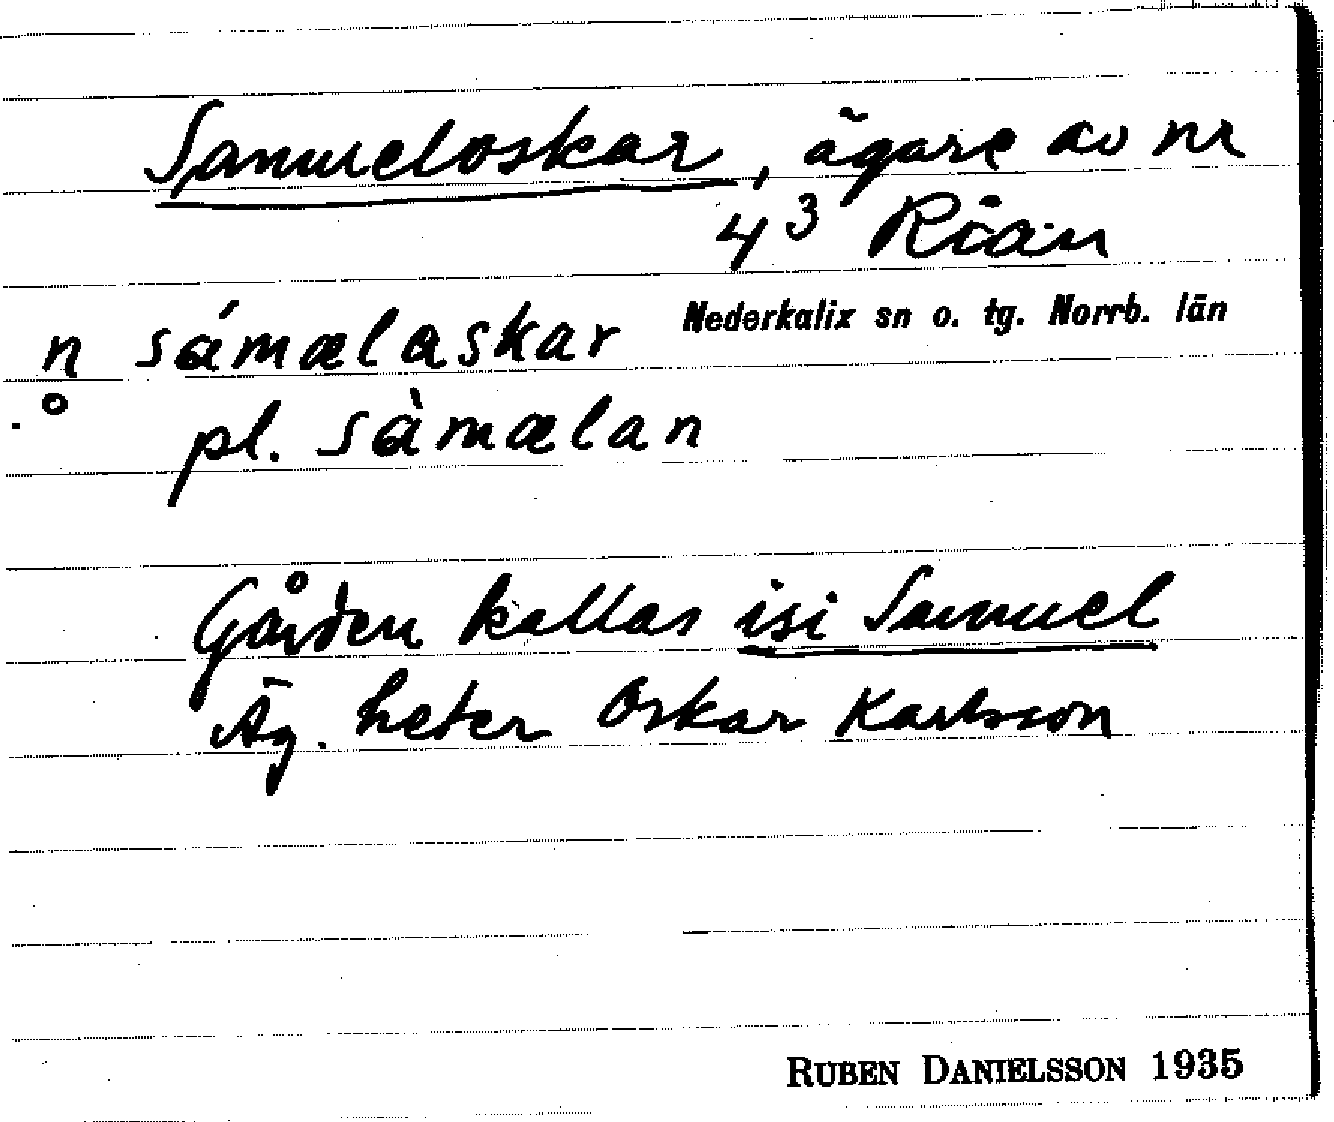 Samueloskar, ägare av nr
4³ Riån
Nederkalix sn o. tg. Norrb. län
n̥ sámælaskar
pl. sàmælan
Gården kallas isi Samuel
Äg. heter Oskar Karlsson
RUBEN DANIELSSON 1935